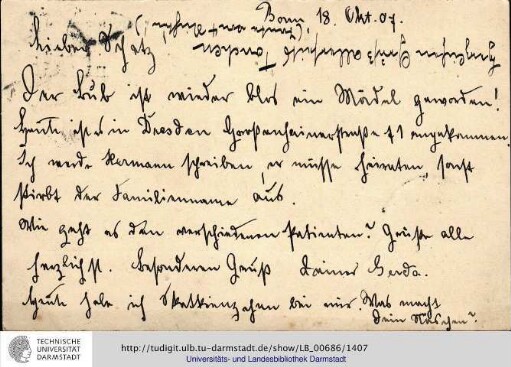 Bonn 18. Okt. 07.
Lieber Schatz
Der Bub ist wieder blos ein Mädel geworden!
Heute ist es in Dresden Großenhainerstraße 71 angekommen.
Ich werde Hermann schreiben, er müsse heiraten, sonst
stirbt der Familienname aus.
Wie geht es den verschiedenen Patienten? Grüße alle
herzlichst. Besonderen Gruß Deiner Gerda.
Heute habe ich bei mir. Was macht
Dein Näschen?
TECHNISCHE
UNIVERSITÄT
DARMSTADT
http://tudigit.ulb.tu-darmstadt.de/show/LB_00686/1407
Universitäts- und Landesbibliothek Darmstadt